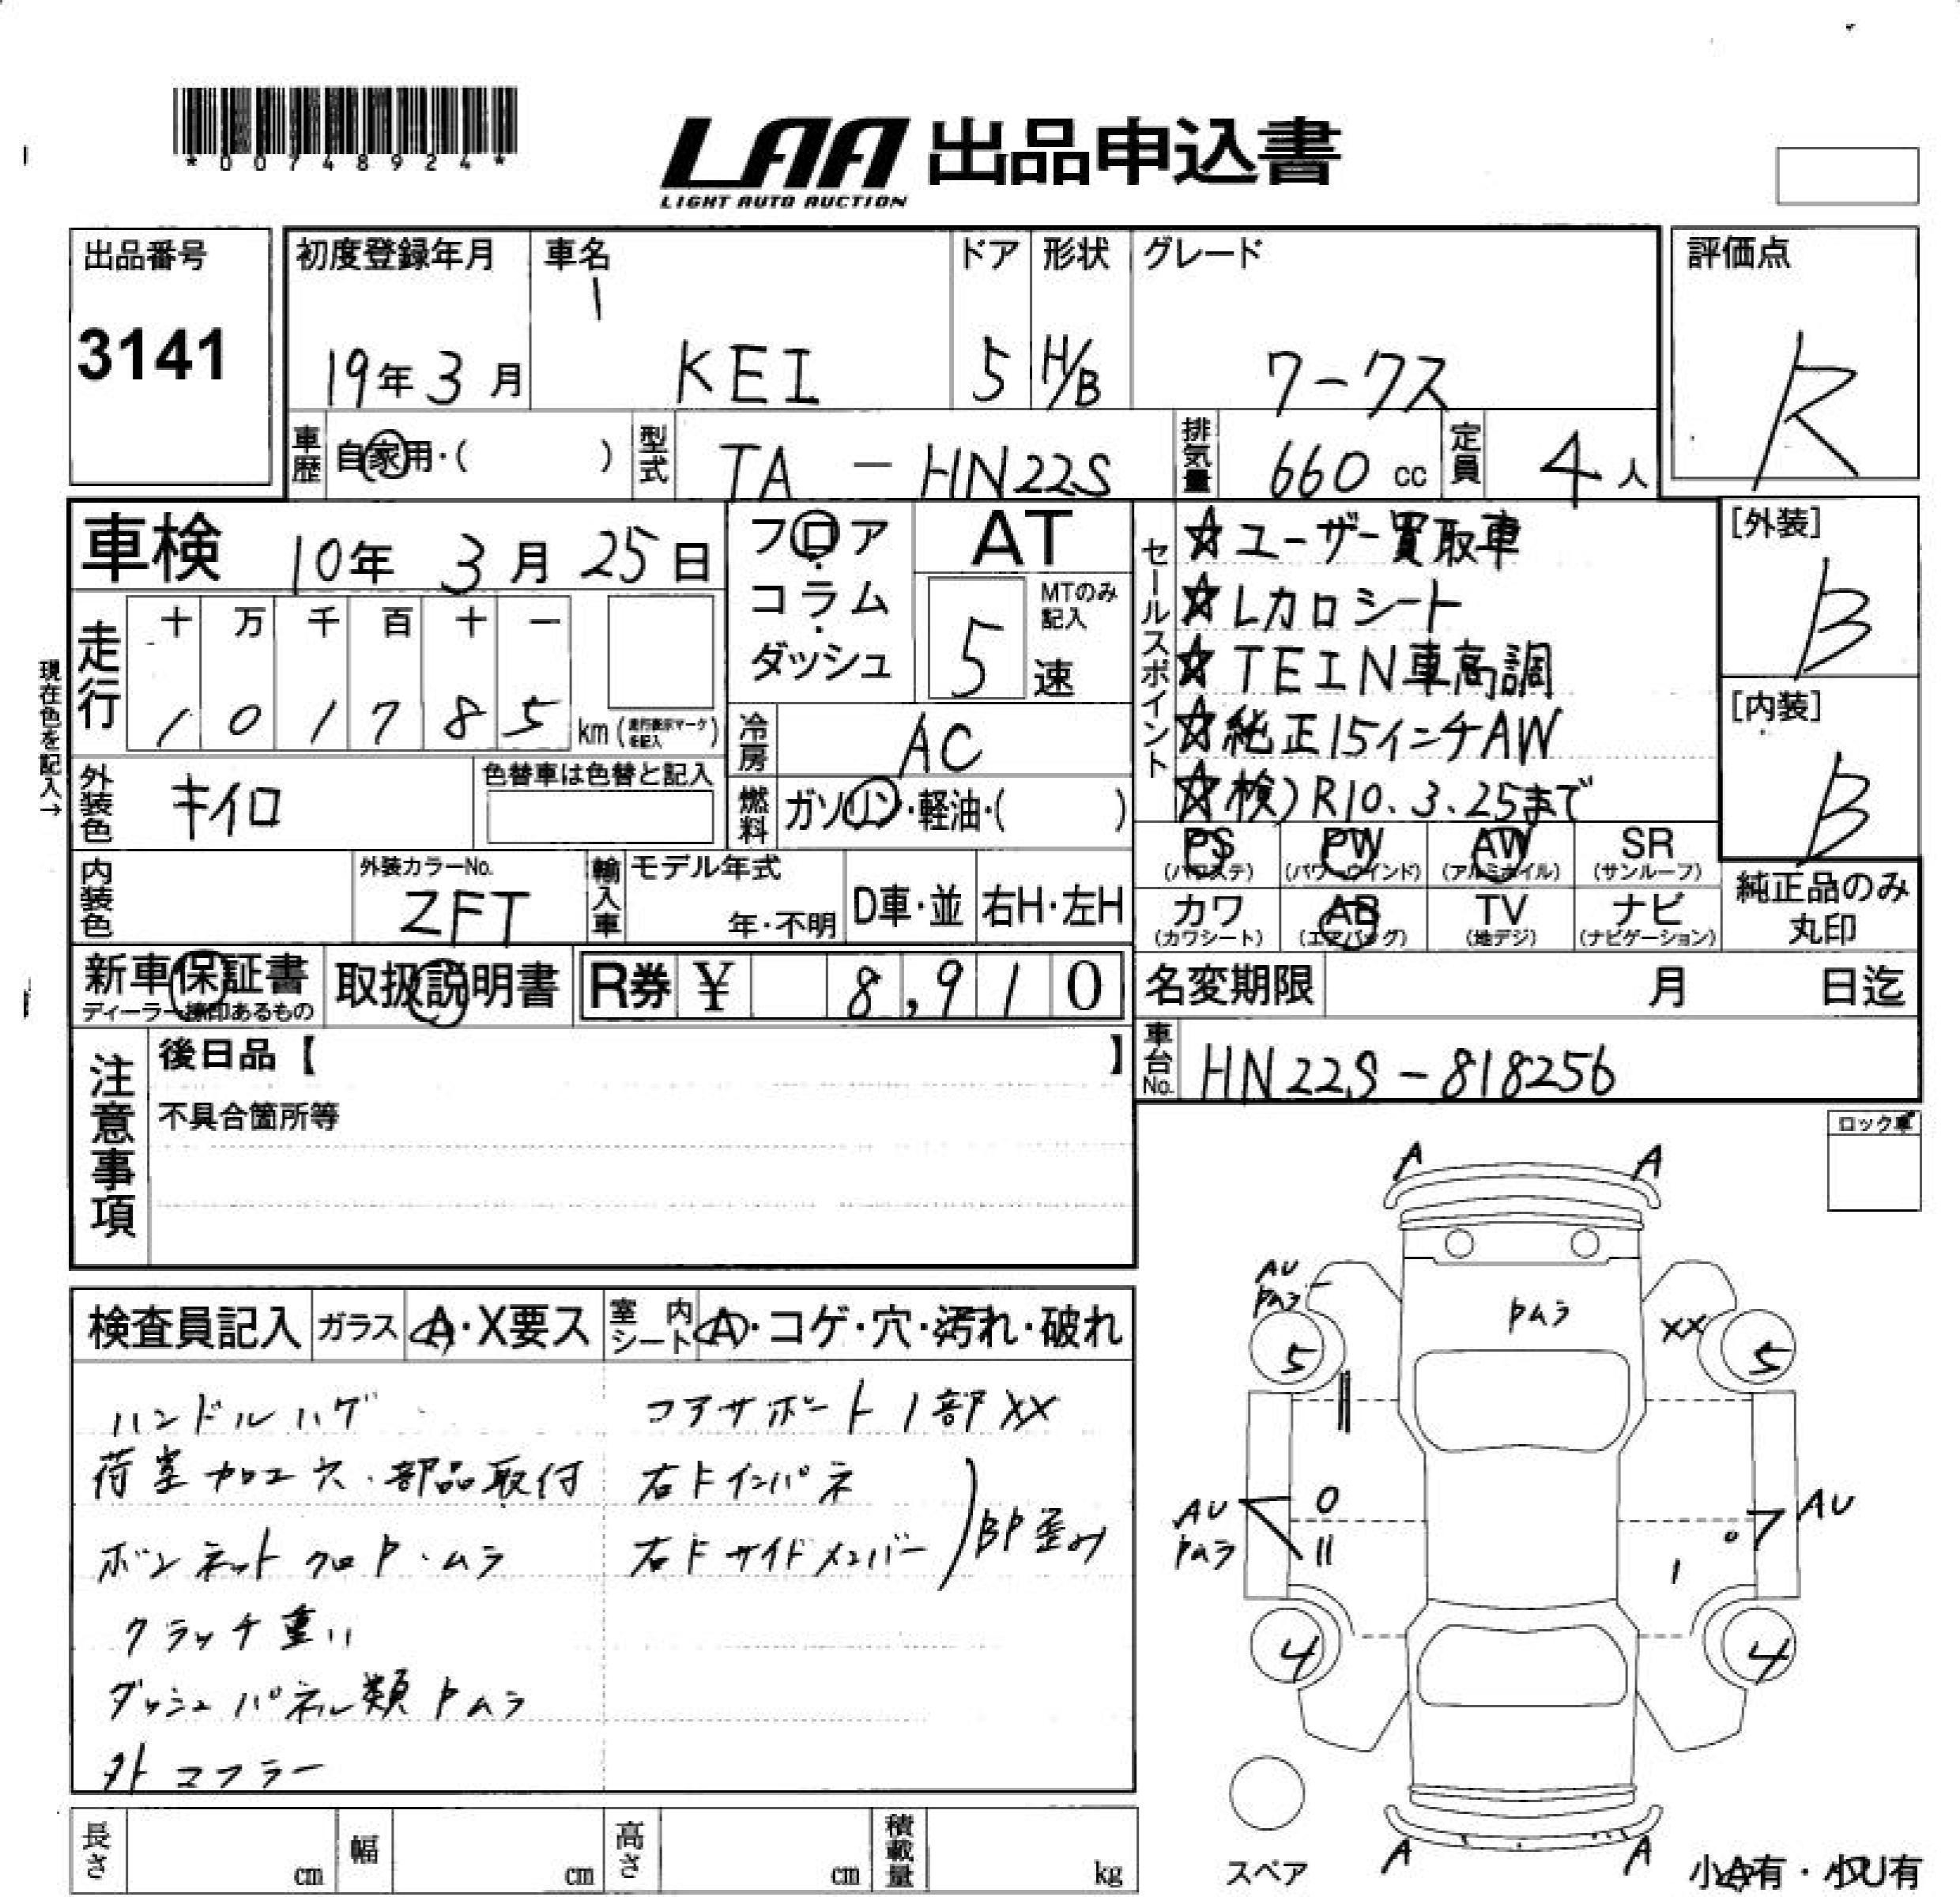 *00748924*
LAA 出品申込書
LIGHT AUTO AUCTION
出品番号
3141
初度登録年月
19年 3月
車名
KEI
ドア
5
形状
H/B
グレード
ワークス
評価点
R
車歴 自家用・( )
型式 TA - HN22S
排気量 660 cc
定員 4人
車検 10年 3月 25日
フロア・コラム・ダッシュ
AT
MTのみ記入
5速
走行
十 万 千 百 十 一
1 0 1 7 8 5 km (走行表示マークを記入)
現在色を記入→
冷房 AC
外装色 キイロ
色替車は色替と記入
燃料 ガソリン・軽油・( )
内装色
外装カラーNo.
ZFT
輸入車
モデル年式
年・不明
D車・並
右H・左H
セールスポイント
☆ユーザー買取車
☆Lカロシート
☆TEIN車高調
☆純正15インチAW
☆検)R10.3.25まで
[外装]
B
[内装]
B
PS (パワステ)
PW (パワーウインド)
AW (アルミホイル)
SR (サンルーフ)
カワ (カワシート)
AB (エアバッグ)
TV (地デジ)
ナビ (ナビゲーション)
純正品のみ丸印
新車保証書
ディーラー捺印あるもの
取扱説明書
R券 ¥ 8,910
名変期限 月 日迄
車台No. HN22S-818256
注意事項
後日品【 】
不具合箇所等
ロック車
検査員記入
ガラス A・X要ス
室内シート A・コゲ・穴・汚れ・破れ
ハンドルハゲ
荷室加工穴・部品取付
ボンネットクロP・ムラ
クラッチ重い
ダッシュパネル類Pムラ
外マフラー
コアサポート1部XX
右Fインパネ
右Fサイドメンバー
BP歪み
A A
AU
Pムラ
Pムラ
XX
5 5
AU
Pムラ
AU
4 4
A A
スペア
小A有・小U有
長さ cm
幅 cm
高さ cm
積載量 kg